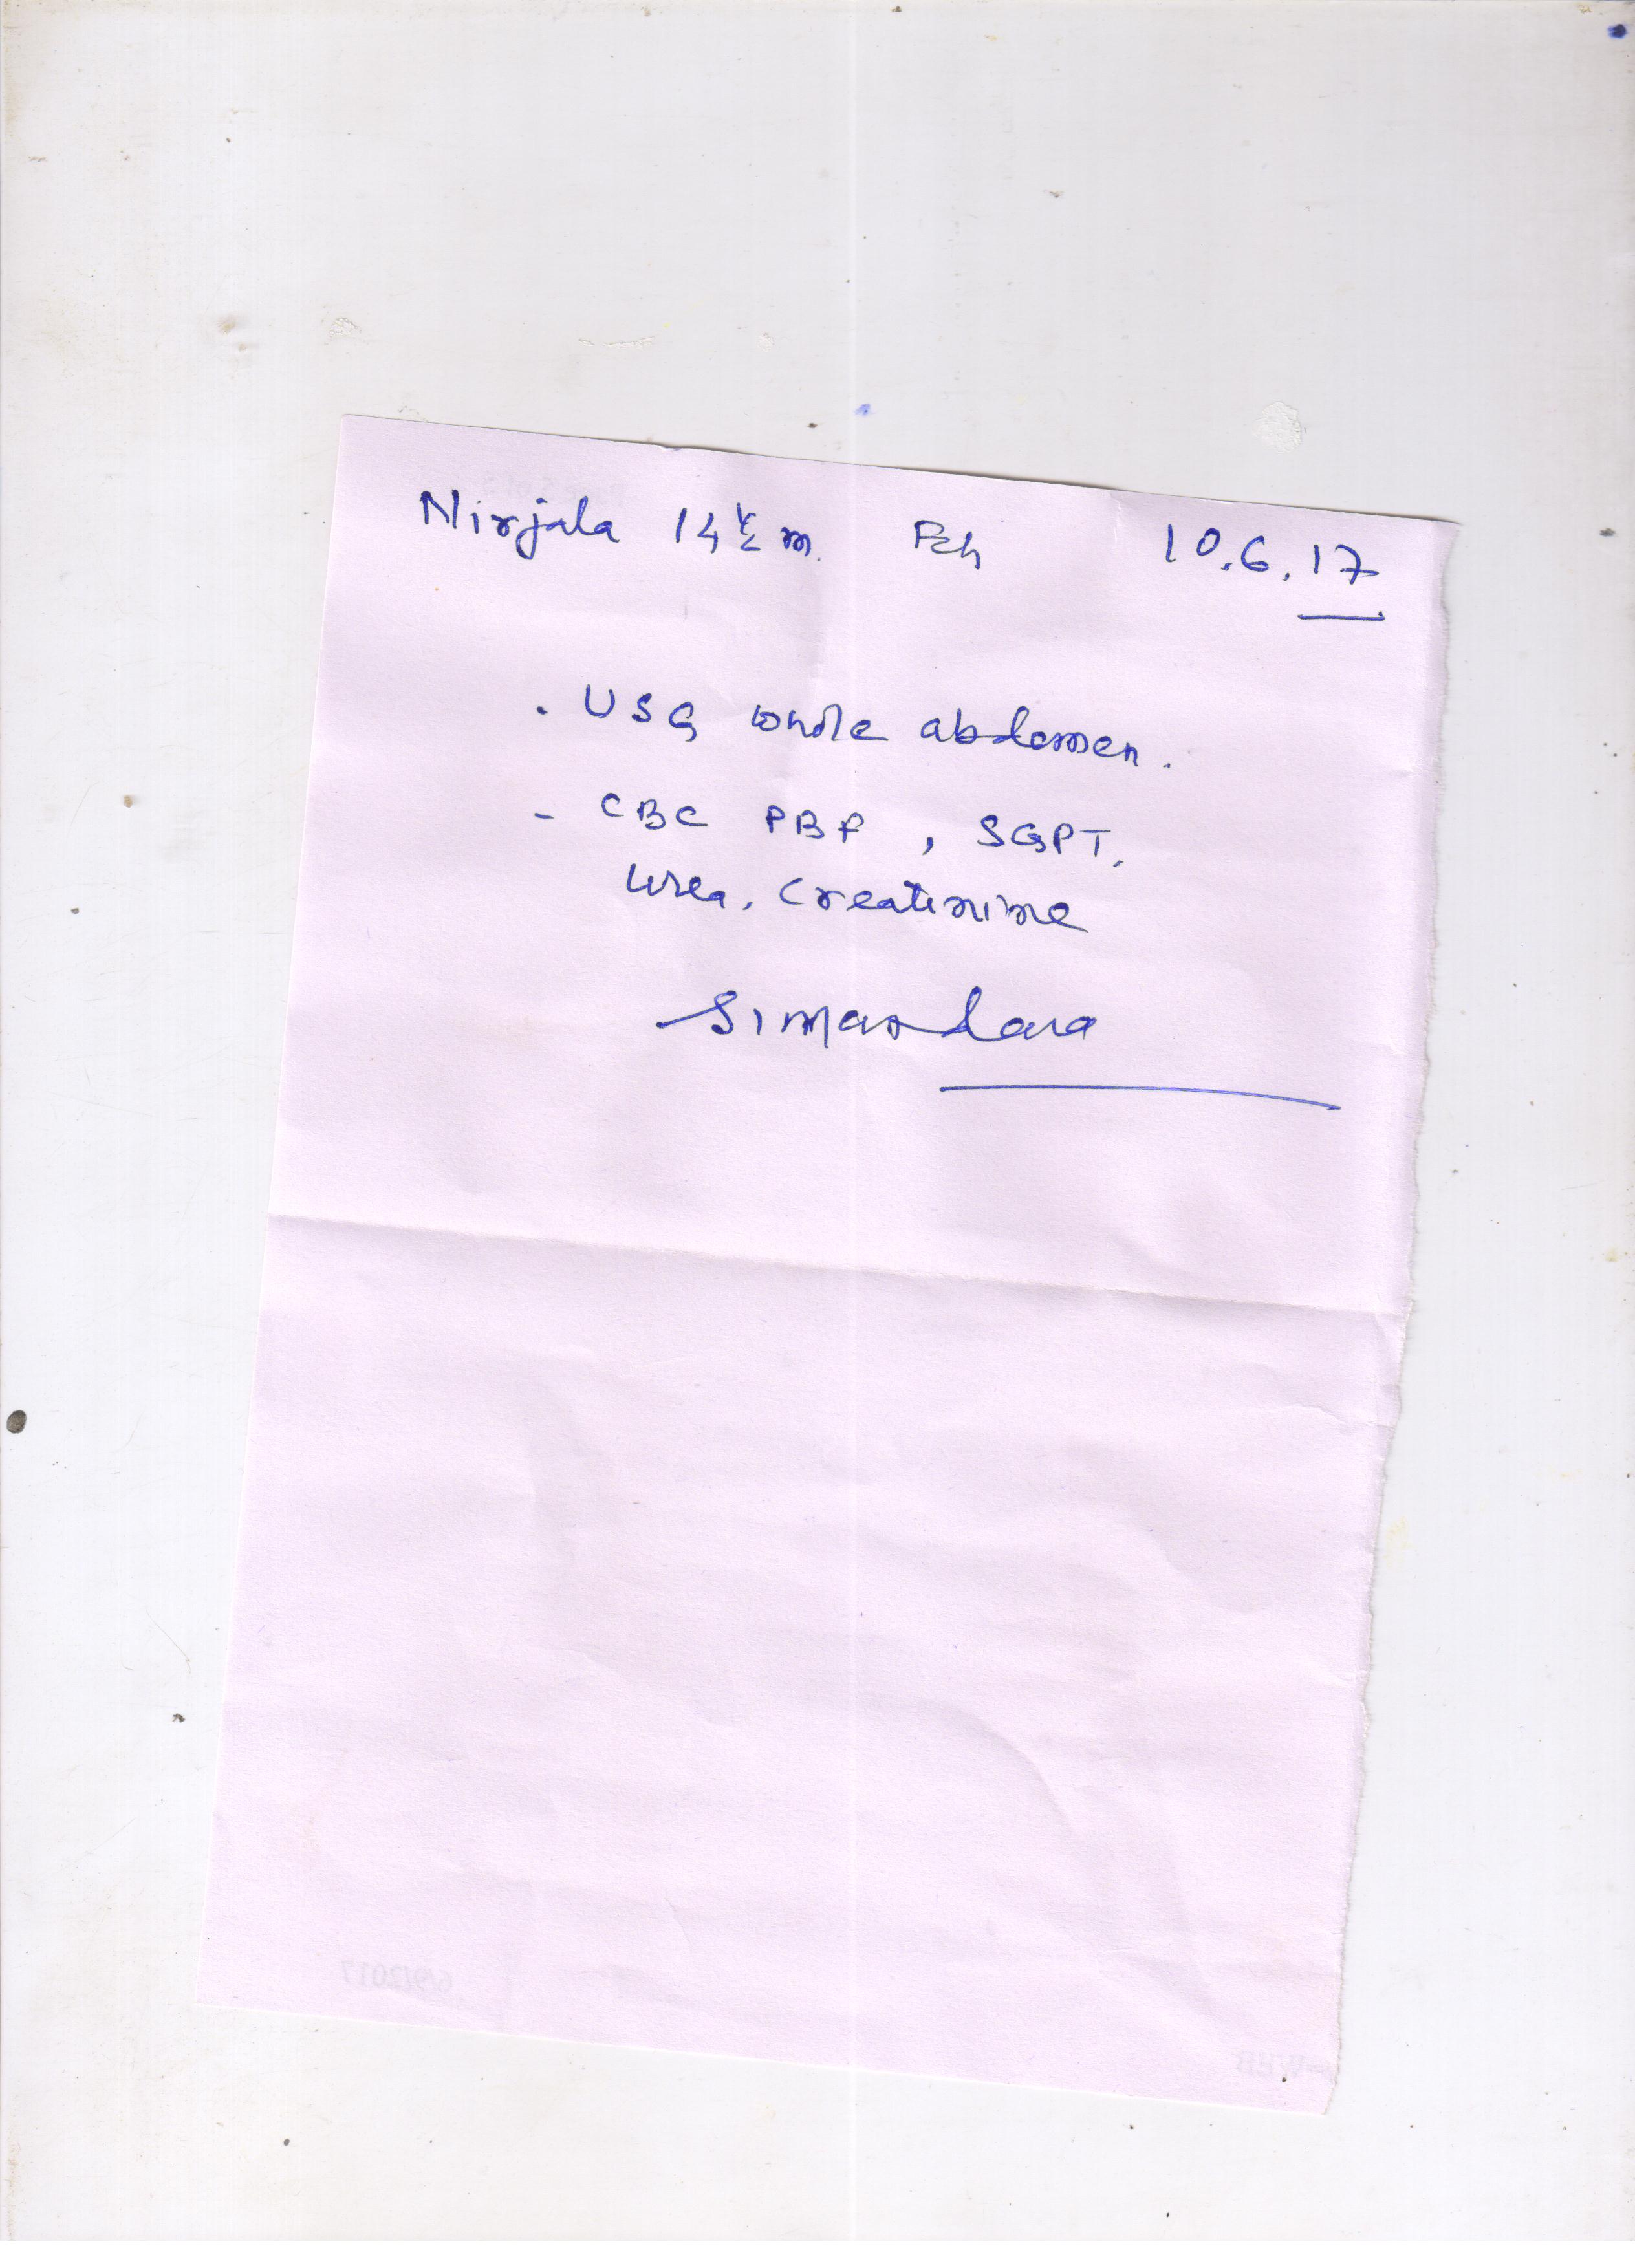 Nirjala 14½ m. Fch 10.6.17
. USG whole abdomen.
- CBC PBF, SGPT,
Urea, Creatinine
6/9/2017